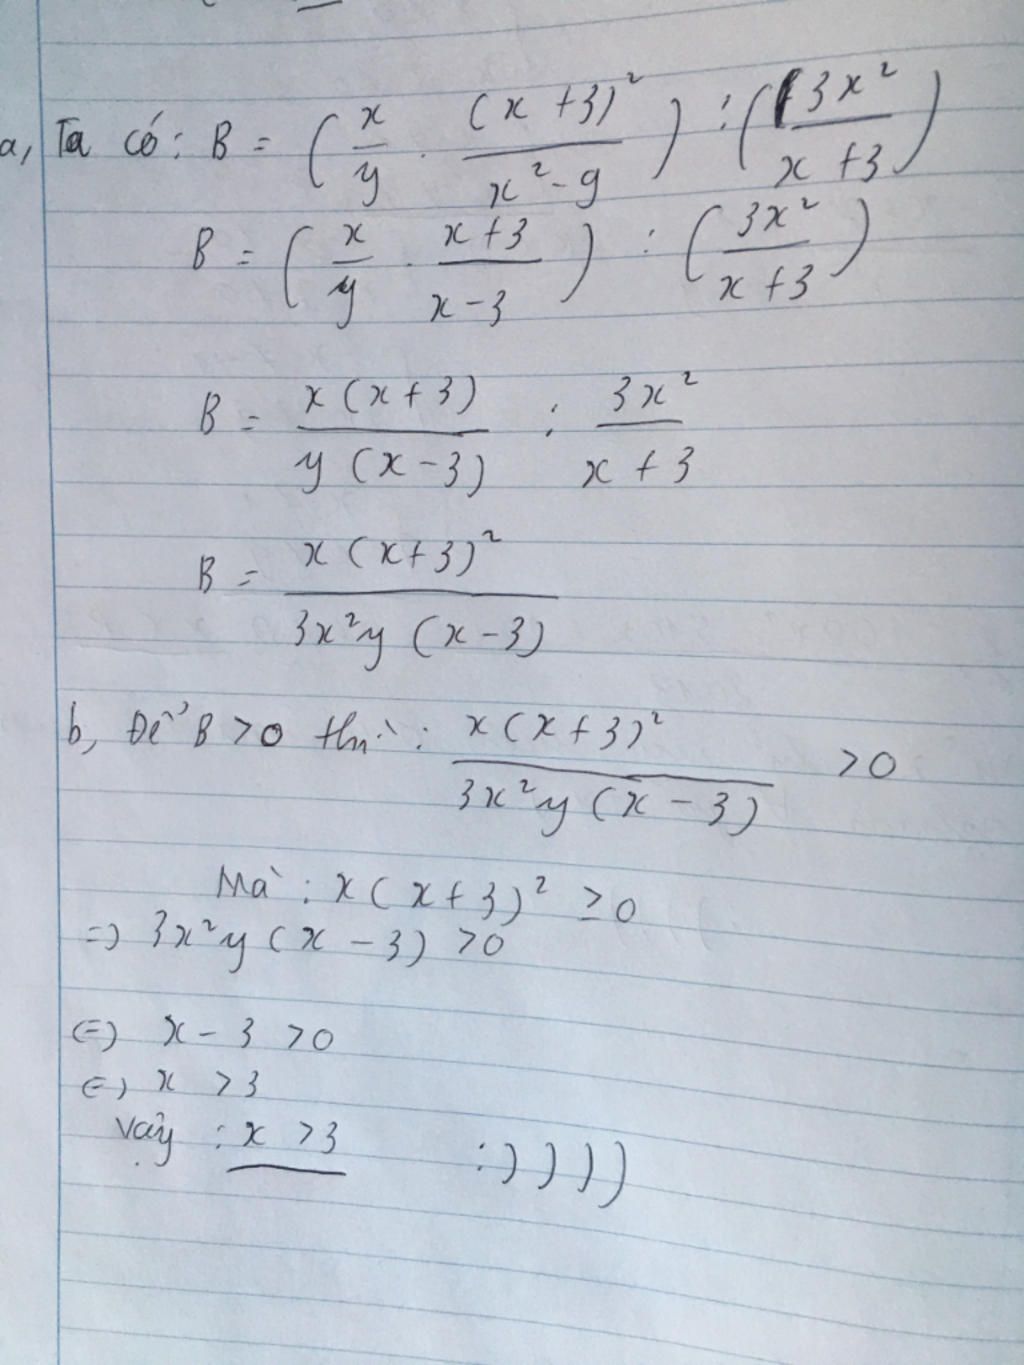 a, Ta có: B = (x/y . (x+3)²/(x²-9)) : (3x²/(x+3))
B = (x/y . (x+3)/(x-3)) : (3x²/(x+3))
B = x(x+3)/(y(x-3)) : 3x²/(x+3)
B = x(x+3)²/(3x²y(x-3))
b, Để B >0 thì : x(x+3)²/(3x²y(x-3)) >0
Mà : x(x+3)² ≥0
=> 3x²y(x-3) >0
<=> x-3 >0
<=> x >3
Vậy : x >3 :))))